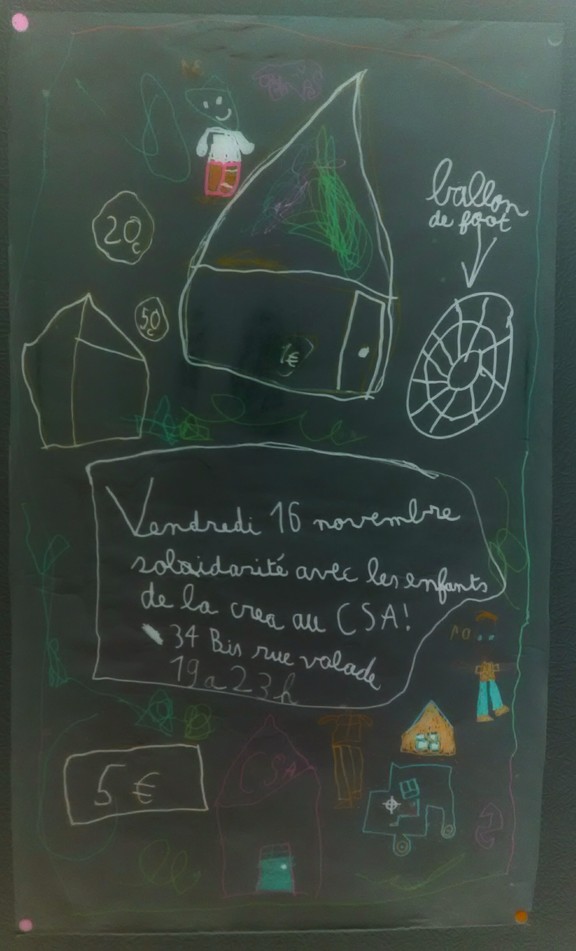 ballon
de foot
20c
50c
1€
Vendredi 16 novembre
soliaidarité avec les enfants
de la crea au CSA!
34 Bis rue valade
19 a 23h
5 €
CSA